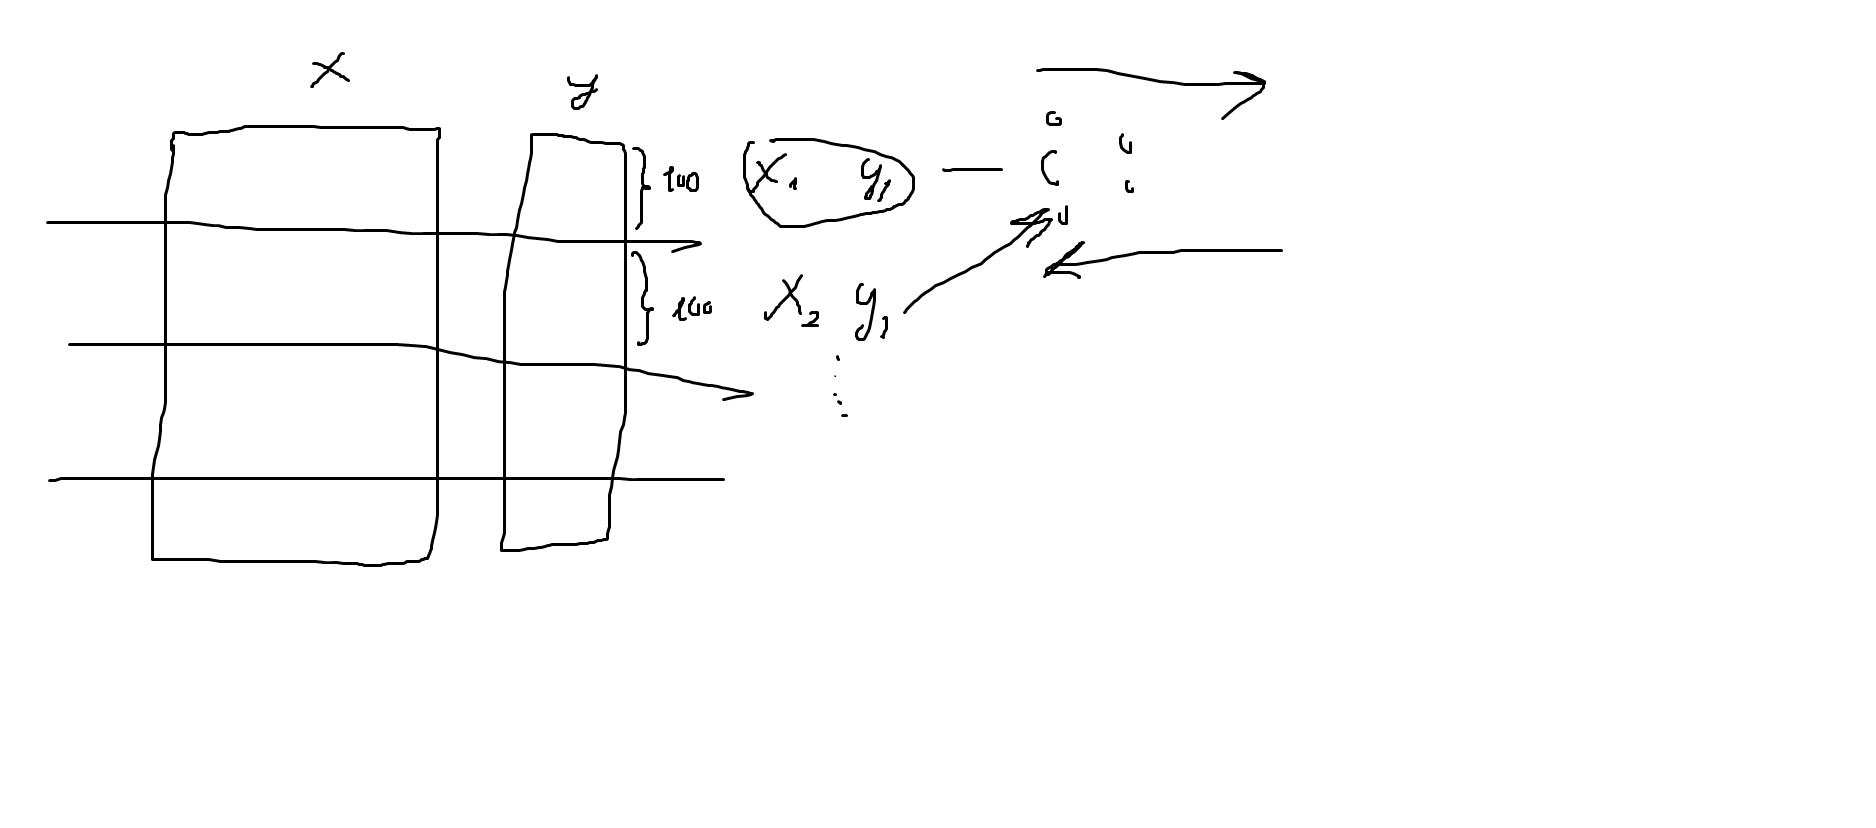 x y
100 x1 y1
100 x2 y1